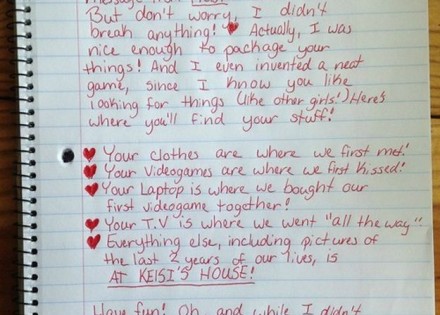 But don't worry, I didn't
break anything! Actually, I was
nice enough to package your
things! And I even invented a neat
game, since I know you like
looking for things (like other girls!) Here's
where you'll find your stuff!
Your clothes are where we first met!
Your videogames are where we first kissed!
Your Laptop is where we bought our
first videogame together!
Your T.V is where we went "all the way"!
Everything else, including pictures of
the last 2 years of our lives, is
AT KEISI'S HOUSE!
Have fun! Oh and while I didn't